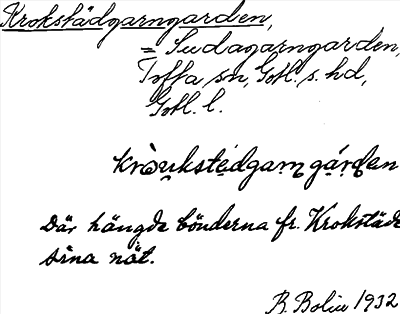 Krokstädgarngarden,
= Sudagarngarden,
Toffa sn, Gotl. s. hd,
Gotl. l.
kròu̯kstedgarn gárden
Där hängde bönderna fr. Krokstäde
sina nät.
B. Bolin 1932